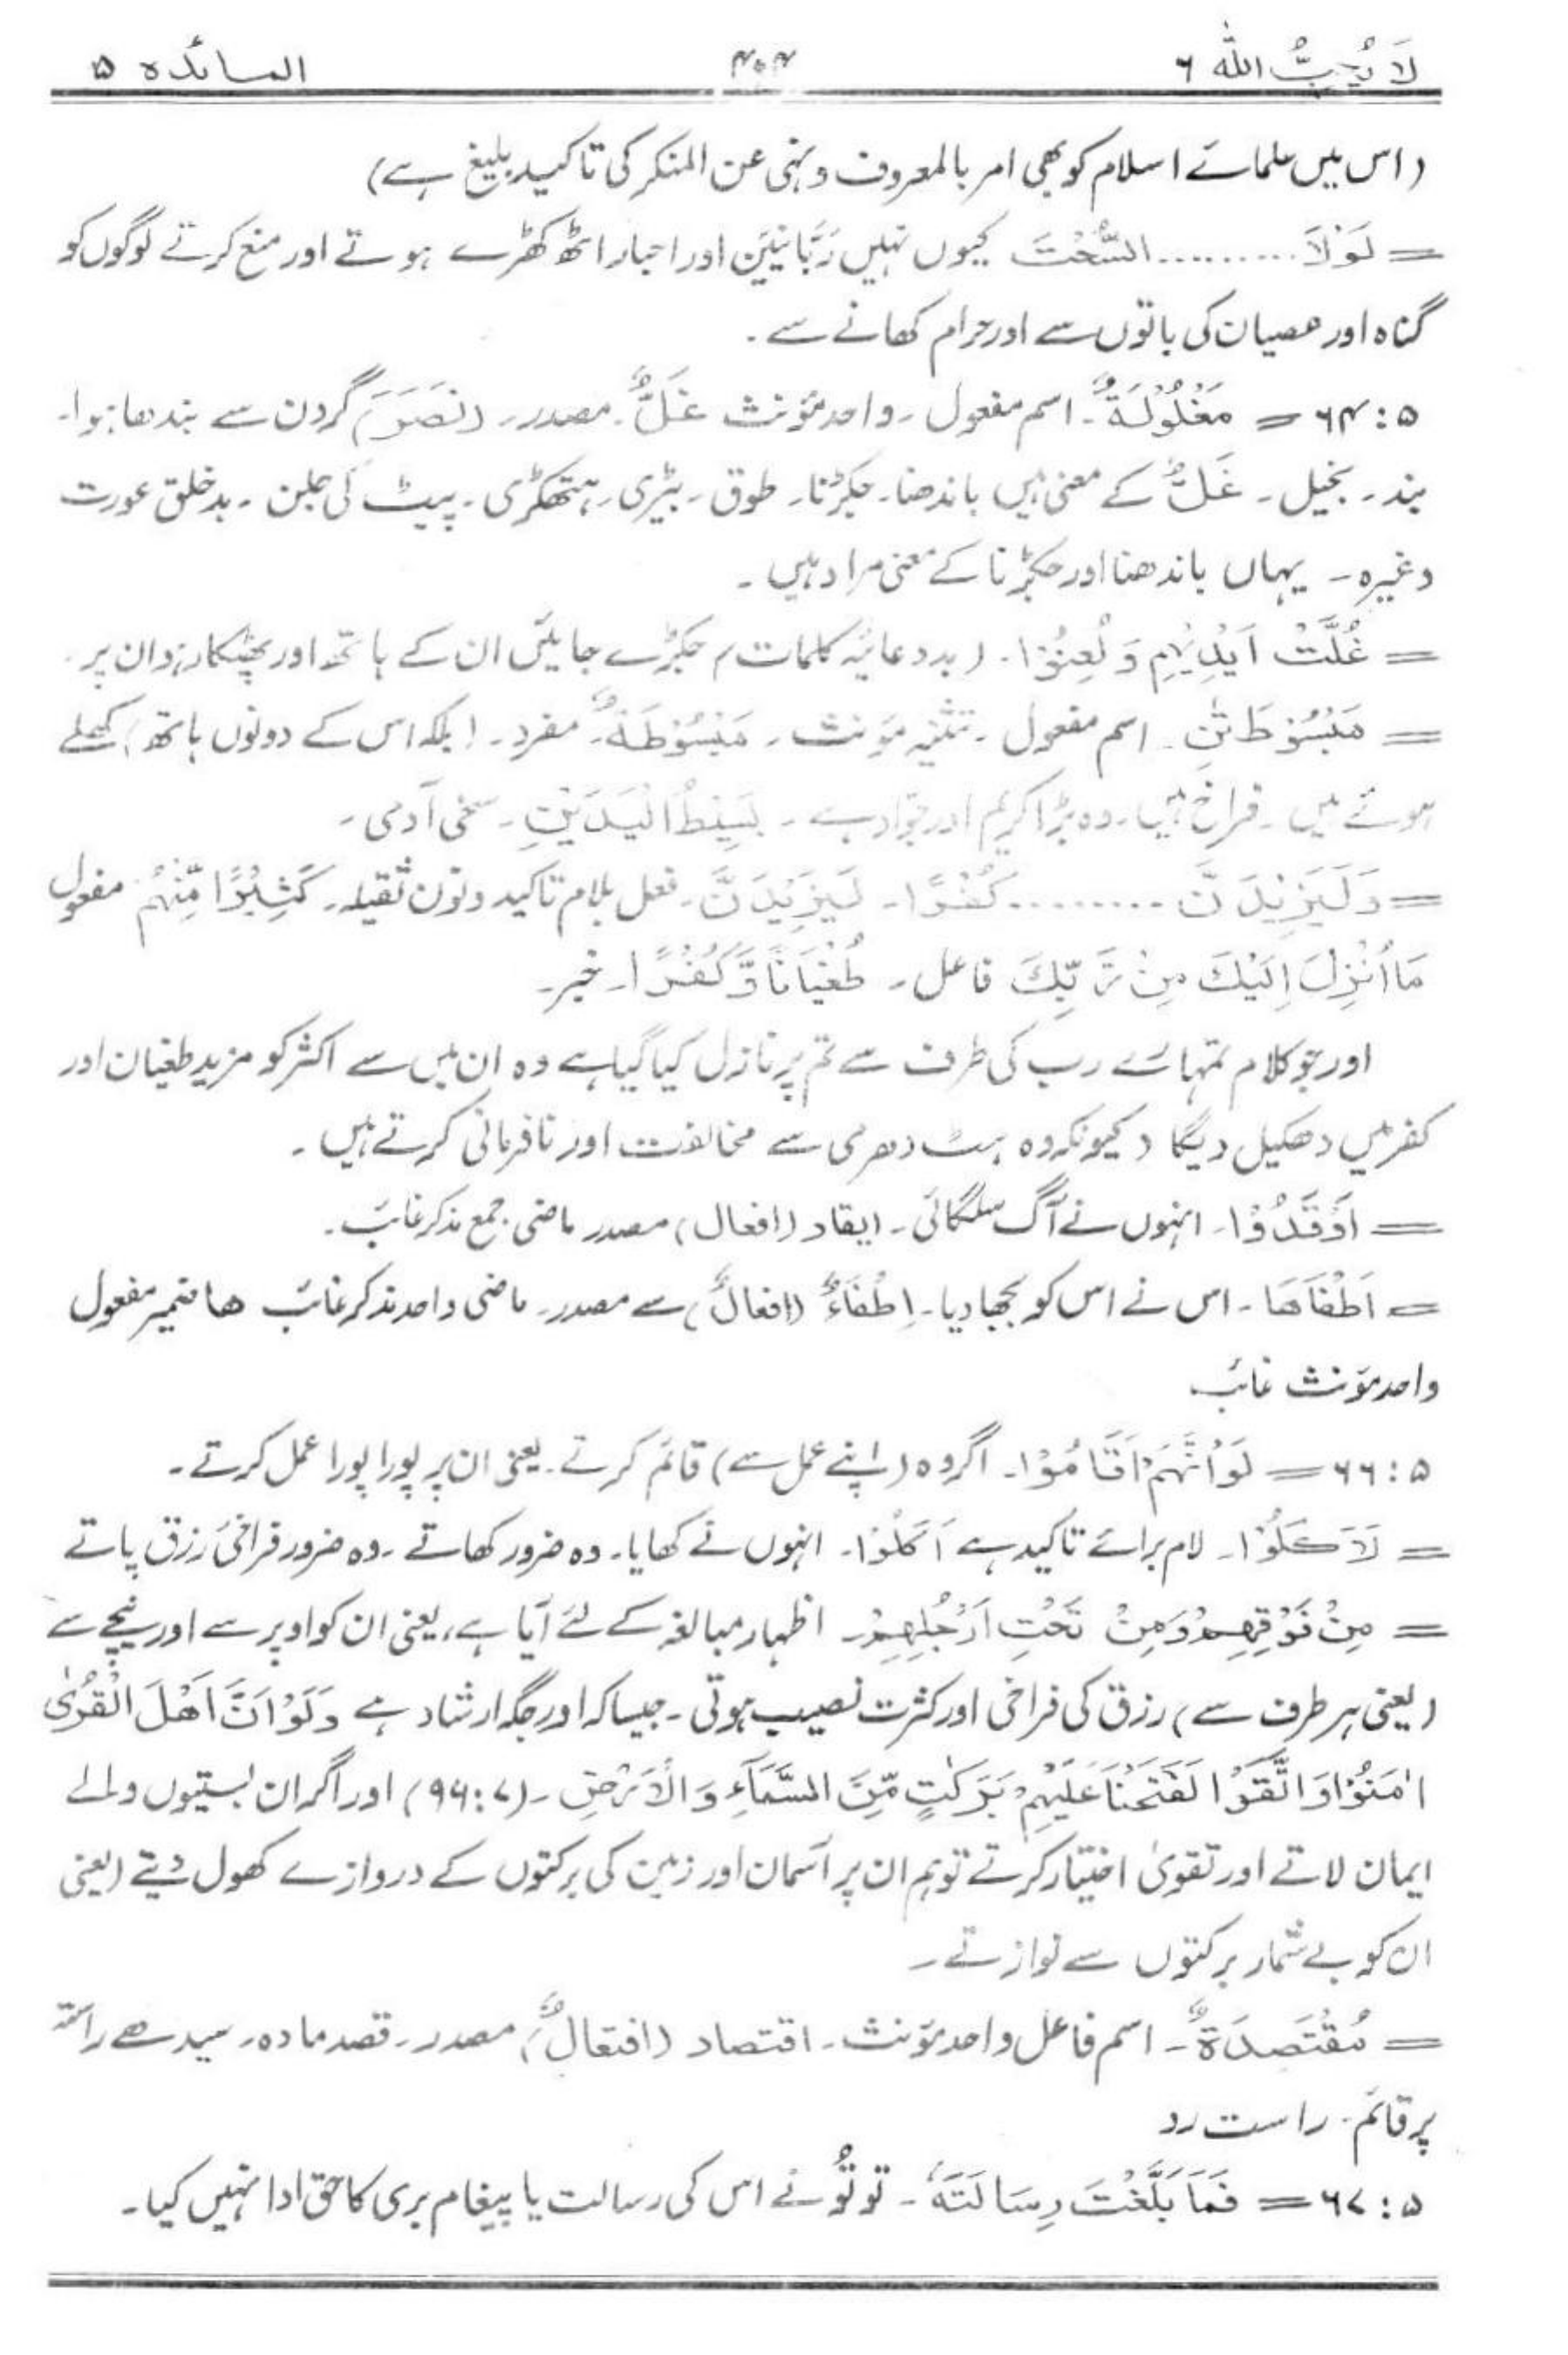 لَا يُحِبُّ اللّٰهُ ۶ ۴۰۴ المائدہ ۵
(اس میں علمائے اسلام کو بھی امر بالمعروف و نہی عن المنکر کی تاکید بلیغ ہے)
= لَوْلَا.......... السُّحْتَ کیوں نہیں رَبَّانِیِّیْن اور احبار اٹھ کھڑے ہوتے اور منع کرتے لوگوں کو
گناہ اور عصیان کی باتوں سے اور حرام کھانے سے ۔
۵ : ۶۴ = مَغْلُوْلَةٌ ۔ اسم مفعول ۔ واحد مؤنث غَلٌّ ۔ مصدر ۔ (نَصَرَ) گردن سے بندھا ہوا۔
بند ۔ بخیل ۔ غَلٌّ کے معنی ہیں باندھنا ۔ جکڑنا ۔ طوق ۔ بیڑی ۔ ہتھکڑی ۔ پیٹ کی جلن ۔ بدخلق عورت
وغیرہ ۔ یہاں باندھنا اور جکڑنا کے معنی مراد ہیں ۔
= غُلَّتْ اَيْدِيْهِمْ وَ لُعِنُوْا ۔ (بددعائیہ کلمات) جکڑے جائیں ان کے ہاتھ اور پھٹکار ہو ان پر ۔
= مَبْسُوْطَتٰنِ ۔ اسم مفعول ۔ تثنیہ مؤنث ۔ مَبْسُوْطَةٌ ۔ مفرد ۔ (بلکہ اس کے دونوں ہاتھ) کھلے
ہوئے ہیں ۔ فراخ ہیں ۔ وہ بڑا کریم اور جوّاد ہے ۔ بَسِيْطُ الْيَدَيْنِ ۔ سخی آدمی ۔
= وَلَيَزِيْدَنَّ ......... كُفْرًا ۔ لَيَزِيْدَنَّ ۔ فعل بلام تاکید و نون ثقیلہ ۔ كَثِيْرًا مِّنْهُمْ مفعول
مَا اُنْزِلَ اِلَيْكَ مِنْ رَّبِّكَ فاعل ۔ طُغْيَانًا وَّكُفْرًا ۔ خبر ۔
اور جو کلام تمہارے رب کی طرف سے تم پر نازل کیا گیا ہے وہ ان میں سے اکثر کو مزید طغیان اور
کفر میں دھکیل دیگا (کیونکہ وہ ہٹ دھرمی سے مخالفت اور نافرمانی کرتے ہیں ۔
= اَوْقَدُوْا ۔ انہوں نے آگ سلگائی ۔ ایقاد (افعال) مصدر ماضی جمع مذکر غائب ۔
= اَطْفَاَهَا ۔ اس نے اس کو بجھا دیا ۔ اِطْفَاءٌ (افعالٌ) سے مصدر ۔ ماضی واحد مذکر غائب ھا ضمیر مفعول
واحد مؤنث غائب
۵ : ۶۶ = لَوْ اَنَّهُمْ اَقَامُوْا ۔ اگر وہ (اپنے عمل سے) قائم کرتے ۔ یعنی ان پر پورا پورا عمل کرتے ۔
= لَاَكَلُوْا ۔ لام برائے تاکید ہے اَكَلُوْا ۔ انہوں نے کھایا ۔ وہ ضرور کھاتے ۔ وہ ضرور فراخیٔ رزق پاتے
= مِنْ فَوْقِهِمْ وَمِنْ تَحْتِ اَرْجُلِهِمْ ۔ اظہار مبالغہ کے لئے آیا ہے، یعنی ان کو اوپر سے اور نیچے سے
(یعنی ہر طرف سے) رزق کی فراخی اور کثرت نصیب ہوتی ۔ جیسا کہ اور جگہ ارشاد ہے وَلَوْ اَنَّ اَهْلَ الْقُرٰى
اٰمَنُوْا وَاتَّقَوْا لَفَتَحْنَا عَلَيْهِمْ بَرَكٰتٍ مِّنَ السَّمَآءِ وَ الْاَرْضِ ۔ (۷ : ۹۶) اور اگر ان بستیوں والے
ایمان لاتے اور تقویٰ اختیار کرتے تو ہم ان پر آسمان اور زمین کی برکتوں کے دروازے کھول دیتے (یعنی
ان کو بے شمار برکتوں سے نوازتے ۔
= مُقْتَصِدَةٌ ۔ اسم فاعل واحد مؤنث ۔ اقتصاد (افتعالٌ) مصدر ۔ قصد مادہ ۔ سیدھے راستہ
پر قائم ۔ راست رو
۵ : ۶۷ = فَمَا بَلَّغْتَ رِسَالَتَهٗ ۔ تو تُو نے اس کی رسالت یا پیغام بری کا حق ادا نہیں کیا ۔